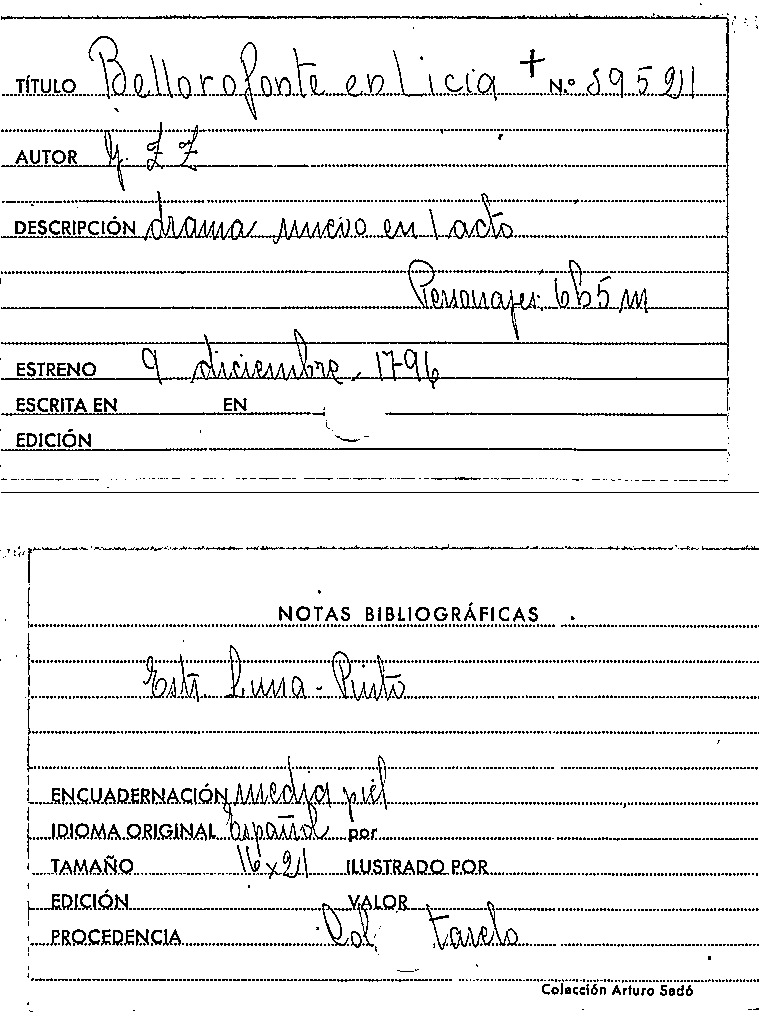 TÍTULO Bellorofonte en Licia + N.º 89521
AUTOR G. Z Z
DESCRIPCIÓN drama nuevo en 1 acto
Personajes: 6h 5m
ESTRENO 9 diciembre - 1796
ESCRITA EN EN
EDICIÓN
NOTAS BIBLIOGRÁFICAS
Estr. Luna - Pinto
ENCUADERNACIÓN media piel
IDIOMA ORIGINAL Español por
TAMAÑO 16x21 ILUSTRADO POR
EDICIÓN VALOR
PROCEDENCIA Col.
Colección Arturo Sedó